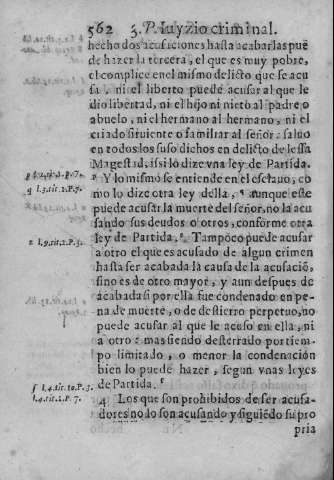 562 3.P. Iuyzio criminal.
hecho dos acusaciones hasta acabarlas puẽ
de hazer la tercera, el que es muy pobre,
el complice en el mismo delicto que se acu
sa, ni el liberto puede acusar al que le
dio libertad, ni el hijo ni nieto al padre, o
abuelo, ni el hermano al hermano, ni el
criado siruiente o familiar al señor: saluo
en todos los suso dichos en delicto de lessa
Magestad, issi lo dize vna ley de Partida.
p Y lo mismo se entiende en el esclauo, co
mo lo dize otra ley della, q aunque este
puede acusar la muerte del señor, no la acu
sando sus deudos o otros, conforme otra
ley de Partida. r Tampoco puede acusar
a otro el que es acusado de algun crimen
hasta ser acabada la causa de la acusaciõ,
sino es de otro mayor, y aun despues de
acabada si por ella fue condenado en pe-
na de muerte, o de destierro perpetuo, no
puede acusar al que le acuso en ella, ni
a otro: mas siendo desterrado por tiem-
po limitado, o menor la condenacion
bien lo puede hazer, segun vnas leyes
de Partida. f
4 Los que son prohibidos de ser acusa-
dores no lo son acusando y siguiẽdo su pro
pria
q l.3.tit.2.P.7.
r l.9.tit.2.P.3.
f l.4.tit.10.P.3.
l.4.tit.1.P.7.